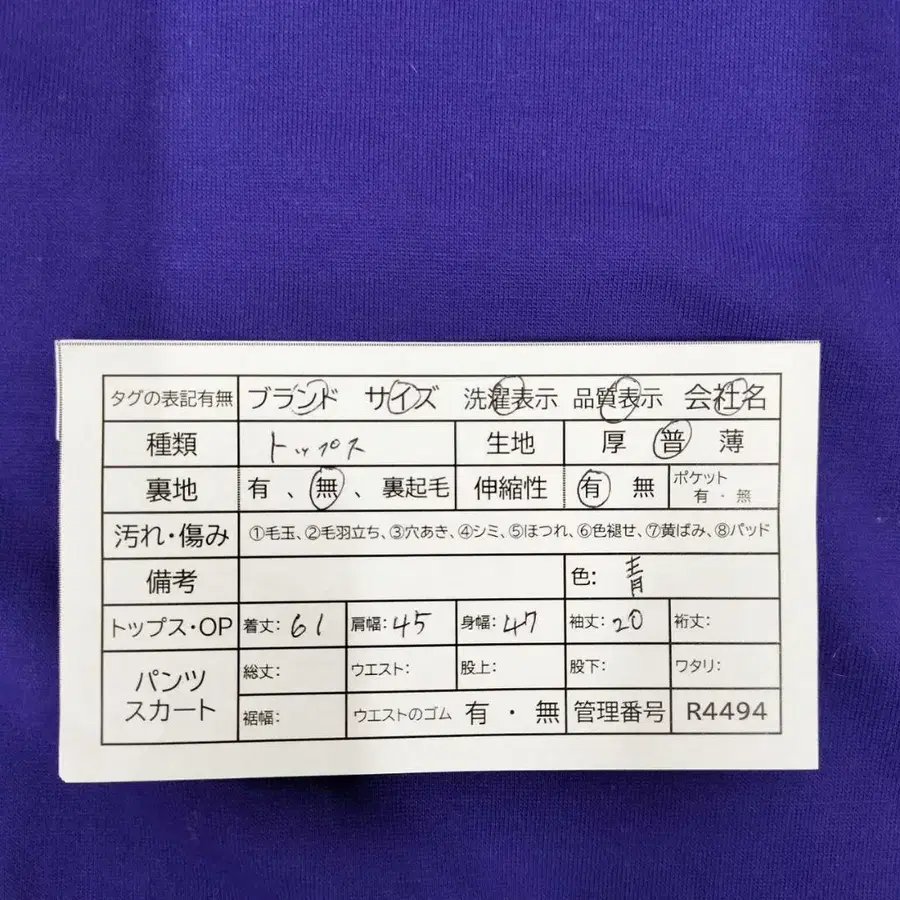 タグの表記有無 ブランド サイズ 洗濯表示 品質表示 会社名
種類 トップス 生地 厚 普 薄
裏地 有、無、裏起毛 伸縮性 有 無 ポケット 有・無
汚れ・傷み ①毛玉、②毛羽立ち、③穴あき、④シミ、⑤ほつれ、⑥色褪せ、⑦黄ばみ、⑧パッド
備考 色: 青
トップス・OP 着丈: 61 肩幅: 45 身幅: 47 袖丈: 20 裄丈:
パンツ スカート 総丈: ウエスト: 股上: 股下: ワタリ:
裾幅: ウエストのゴム 有・無 管理番号 R4494